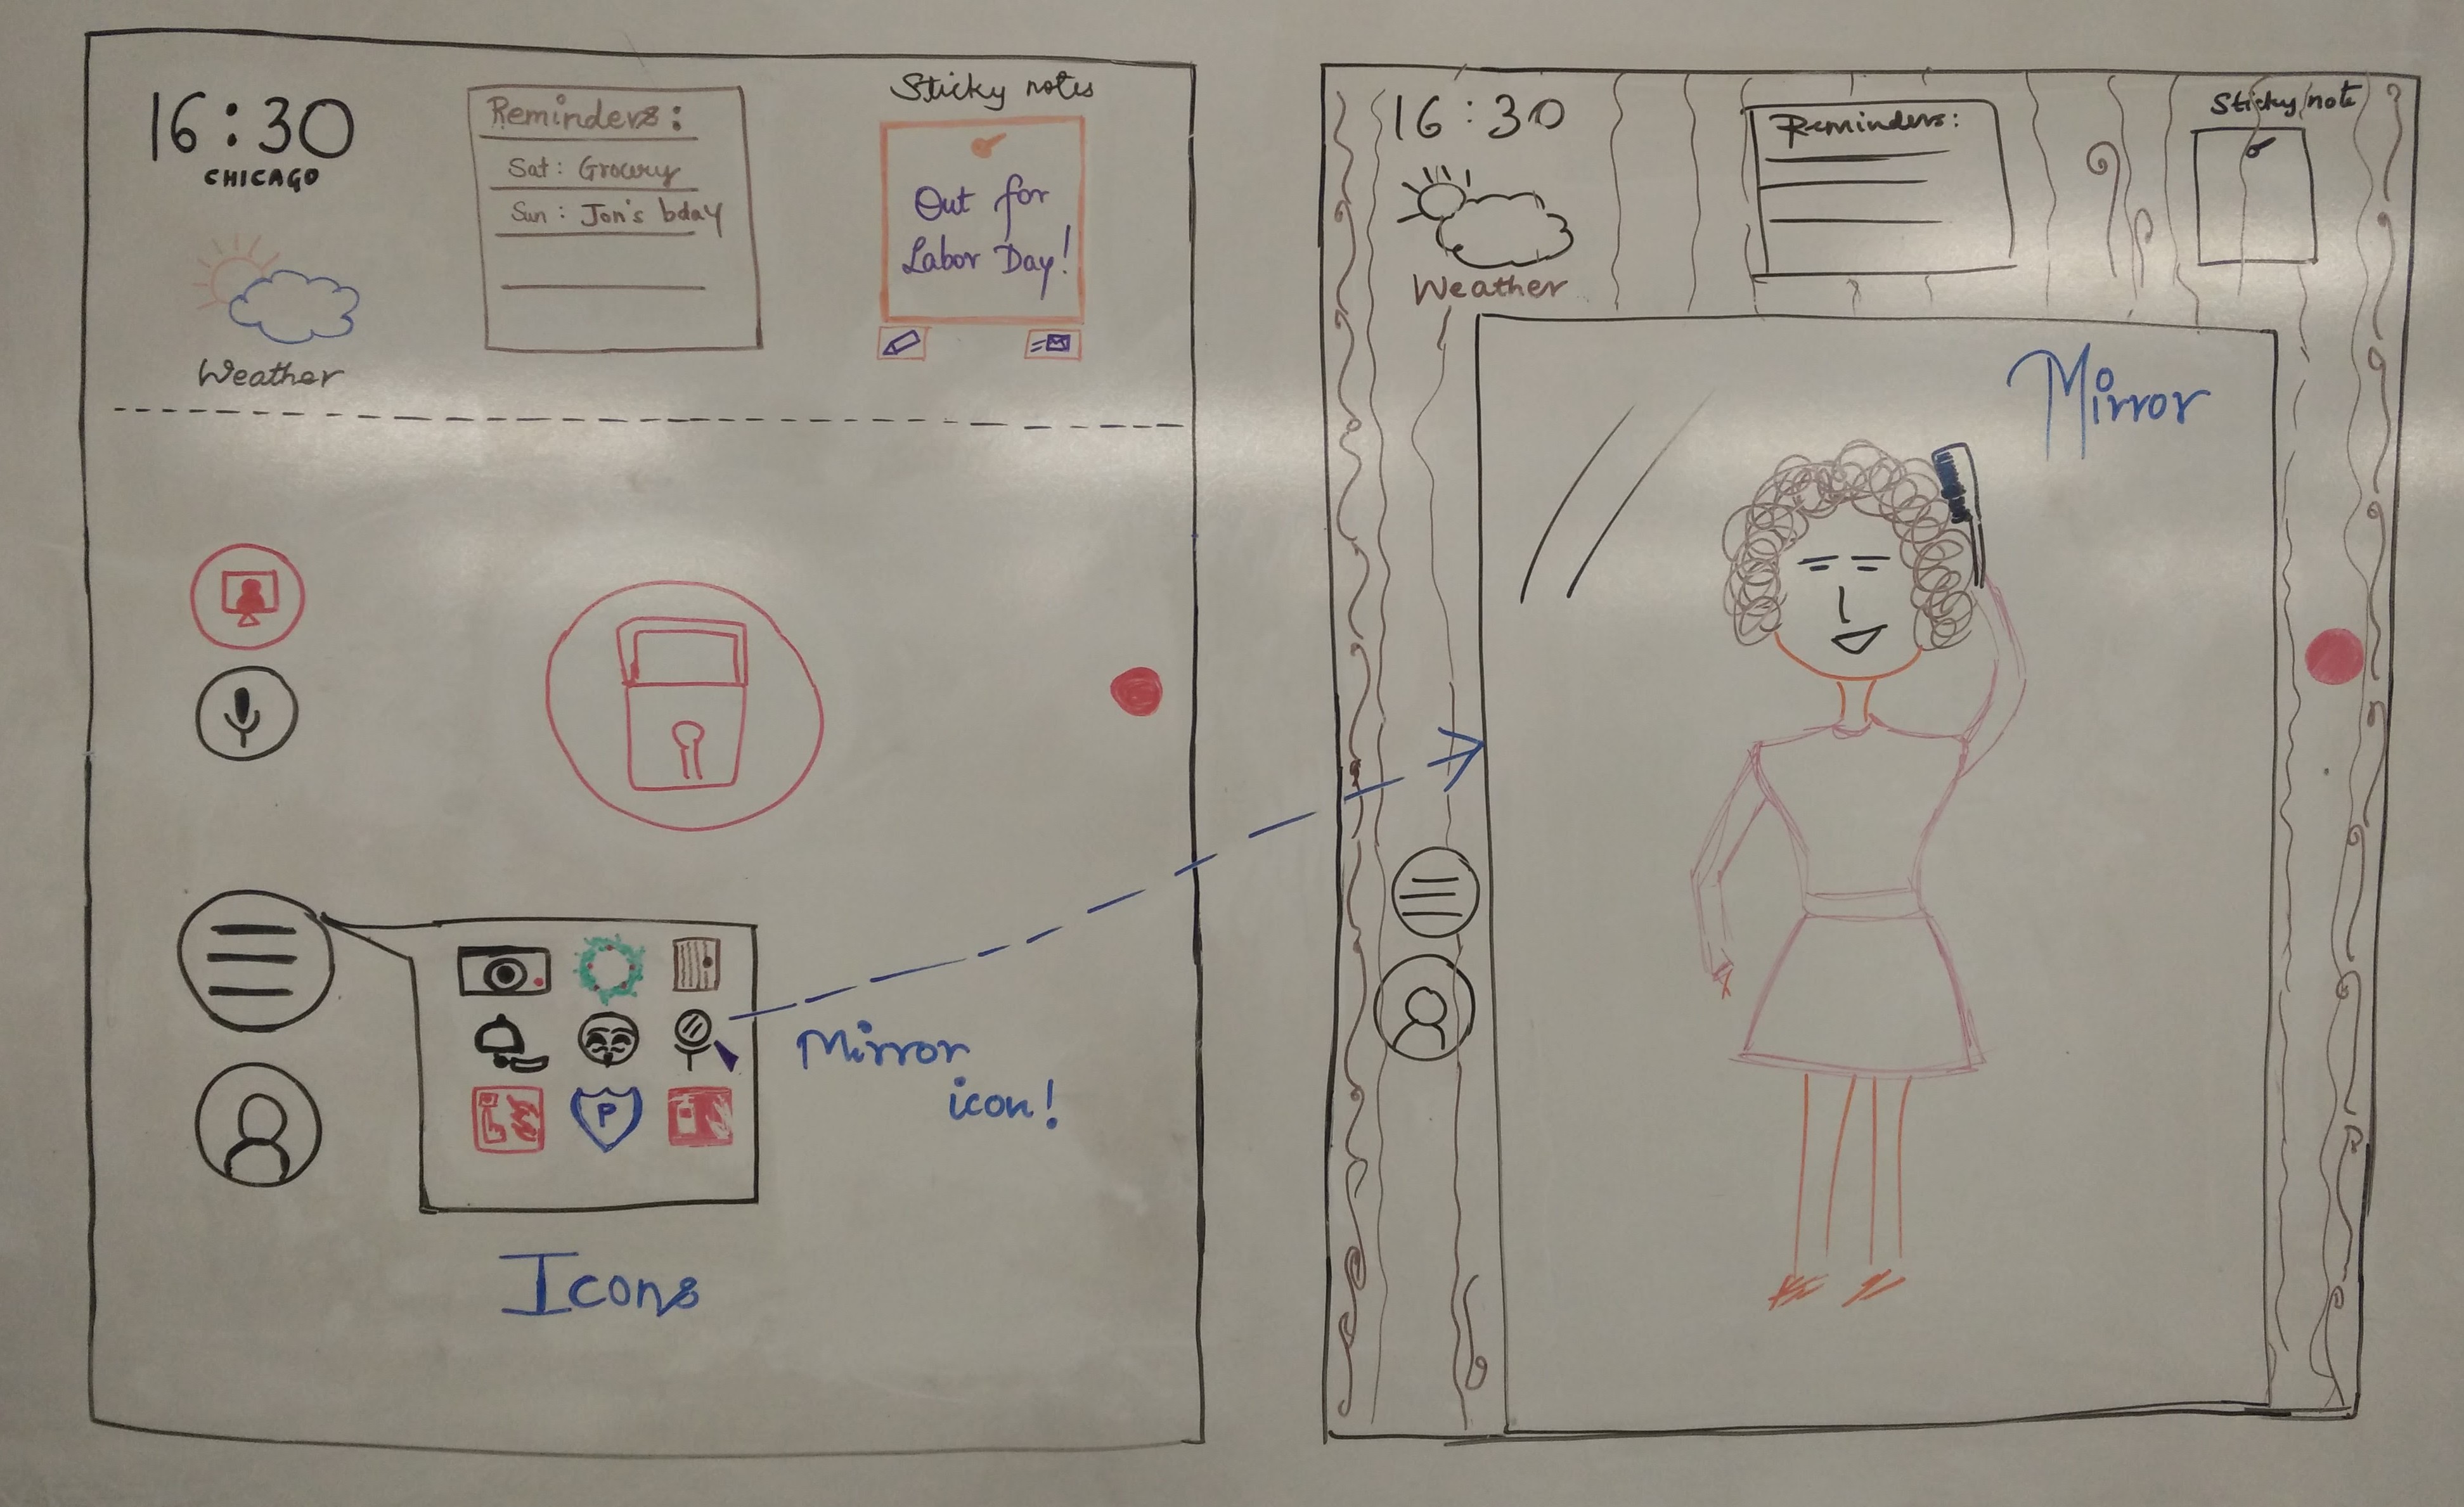 16:30
CHICAGO
Weather
Reminders:
Sat: Grocery
Sun: Jon's bday
Sticky notes
Out for
Labor Day!
P
Mirror
icon!
Icons
16:30
Weather
Reminders:
Sticky note
Mirror